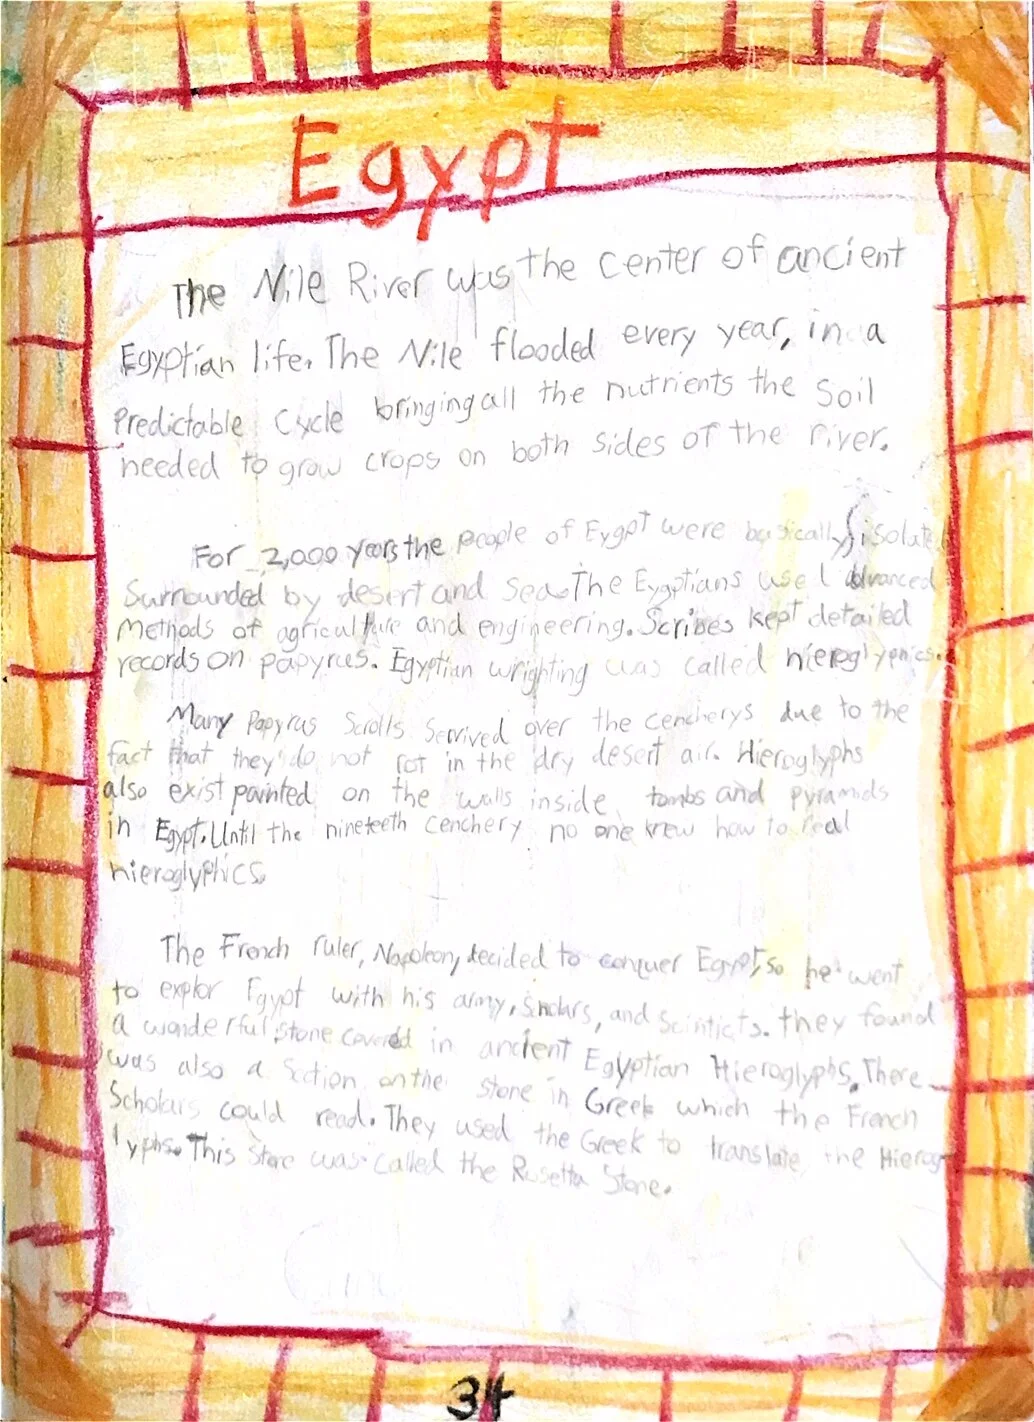 Egypt
The Nile River was the center of ancient
Egyptian life. The Nile flooded every year, in a
Predictable Cycle bringing all the nutrients the Soil
needed to grow crops on both sides of the river.
For 2,000 years the people of Eygpt were basically isolated
Surrounded by desert and sea. The Eygptians used advanced
Methods of agriculture and engineering. Scribes kept detailed
records on papyrus. Egyptian wrighting was called hieroglyphics.
Many Papyrus Scrolls Servived over the cencherys due to the
fact that they do not rot in the dry desert air. Hieroglyphs
also exist painted on the walls inside tombs and pyramids
in Egypt. Until the nineteeth cenchery no one knew how to read
hieroglyphics.
The French ruler, Napoleon, decided to conquer Egypt, so he went
to explor Egypt with his army, Scholars, and Scinticts. they found
a wonderful stone covered in ancient Egyptian Hieroglyphs. There
was also a Section on the stone in Greek which the French
Scholars could read. They used the Greek to translate the Hierog-
lyphs. This Stone was called the Rosetta Stone.
34